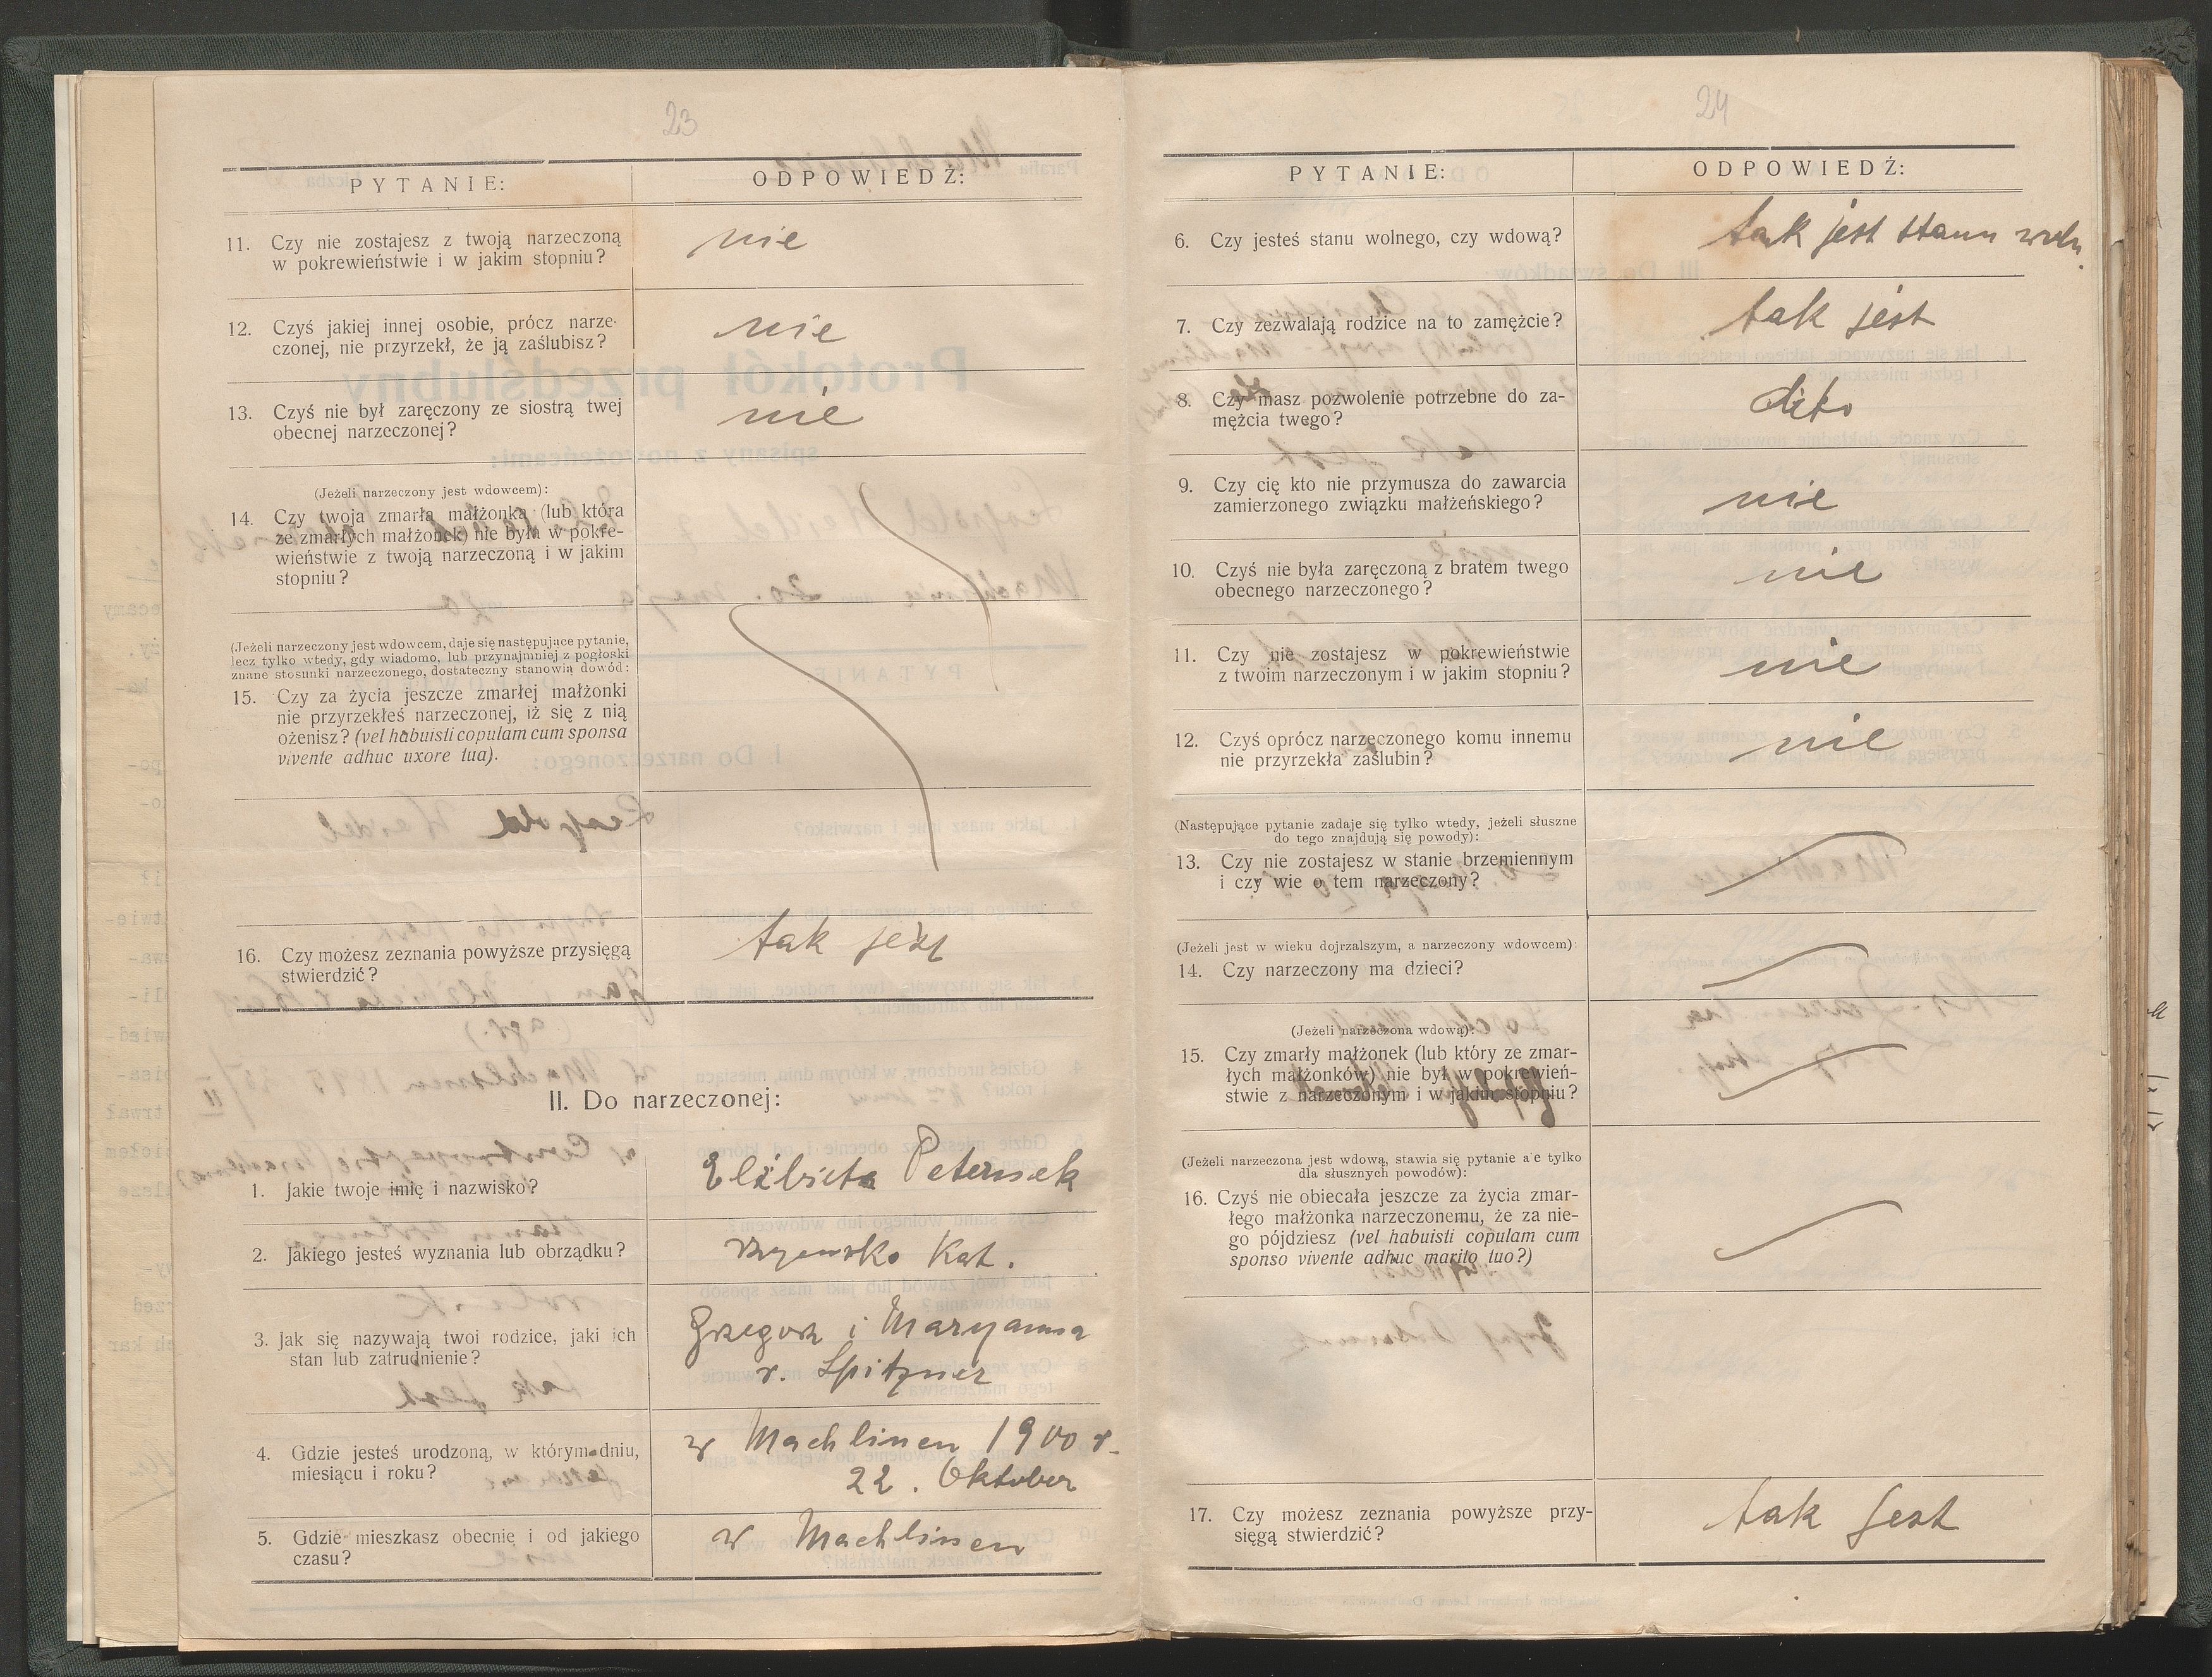 23
PYTANIE:
ODPOWIEDŹ:
11. Czy nie zostajesz z twoją narzeczoną
w pokrewieństwie i w jakim stopniu?
nie
12. Czyś jakiej innej osobie, prócz narze-
czonej, nie przyrzekł, że ją zaślubisz?
nie
13. Czyś nie był zaręczony ze siostrą twej
obecnej narzeczonej?
nie
(Jeżeli narzeczony jest wdowcem):
14. Czy twoja zmarła małżonka (lub która
ze zmarłych małżonek) nie była w pokre-
wieństwie z twoją narzeczoną i w jakim
stopniu?
(Jeżeli narzeczony jest wdowcem, daje się następujące pytanie,
lecz tylko wtedy, gdy wiadomo, lub przynajmniej z pogłoski
znane stosunki narzeczonego, dostateczny stanowią dowód:
15. Czy za życia jeszcze zmarłej małżonki
nie przyrzekłeś narzeczonej, iż się z nią
ożenisz? (vel habuisti copulam cum sponsa
vivente adhuc uxore tua).
16. Czy możesz zeznania powyższe przysięgą
stwierdzić?
tak jest
II. Do narzeczonej:
1. Jakie twoje imię i nazwisko?
Elżbieta Peternek
2. Jakiego jesteś wyznania lub obrządku?
rzymsko Kat.
3. Jak się nazywają twoi rodzice, jaki ich
stan lub zatrudnienie?
Grzegorz i Maryanna
r. Spitzner
4. Gdzie jesteś urodzoną, w którym dniu,
miesiącu i roku?
w Machlinen 1900 r.
22. Oktober
5. Gdzie mieszkasz obecnie i od jakiego
czasu?
w Machlinen
24
PYTANIE:
ODPOWIEDŹ:
6. Czy jesteś stanu wolnego, czy wdową?
tak jest stanu woln.
7. Czy zezwalają rodzice na to zamężcie?
tak jest
8. Czy masz pozwolenie potrzebne do za-
mężcia twego?
dito
9. Czy cię kto nie przymusza do zawarcia
zamierzonego związku małżeńskiego?
nie
10. Czyś nie była zaręczoną z bratem twego
obecnego narzeczonego?
nie
11. Czy nie zostajesz w pokrewieństwie
z twoim narzeczonym i w jakim stopniu?
nie
12. Czyś oprócz narzeczonego komu innemu
nie przyrzekła zaślubin?
nie
(Następujące pytanie zadaje się tylko wtedy, jeżeli słuszne
do tego znajdują się powody):
13. Czy nie zostajesz w stanie brzemiennym
i czy wie o tem narzeczony?
(Jeżeli jest w wieku dojrzalszym, a narzeczony wdowcem):
14. Czy narzeczony ma dzieci?
(Jeżeli narzeczona wdową):
15. Czy zmarły małżonek (lub który ze zmar-
łych małżonków) nie był w pokrewień-
stwie z narzeczonym i w jakim stopniu?
(Jeżeli narzeczona jest wdową, stawia się pytanie ale tylko
dla słusznych powodów):
16. Czyś nie obiecała jeszcze za życia zmar-
łego małżonka narzeczonemu, że za nie-
go pójdziesz (vel habuisti copulam cum
sponso vivente adhuc marito tuo?)
17. Czy możesz zeznania powyższe przy-
sięgą stwierdzić?
tak jest